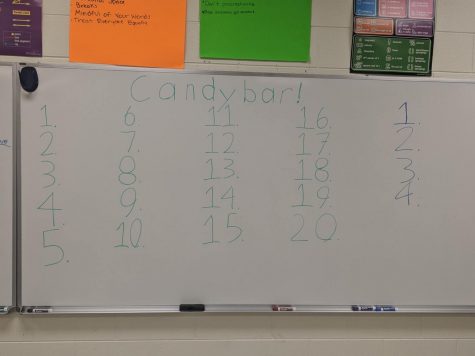 Breaks
Mindful of Your Words
Treat Everyone Equally
Candybar!
1. 6. 11. 16. 1.
2. 7. 12. 17. 2.
3. 8. 13. 18. 3.
4. 9. 14. 19. 4.
5. 10. 15. 20.